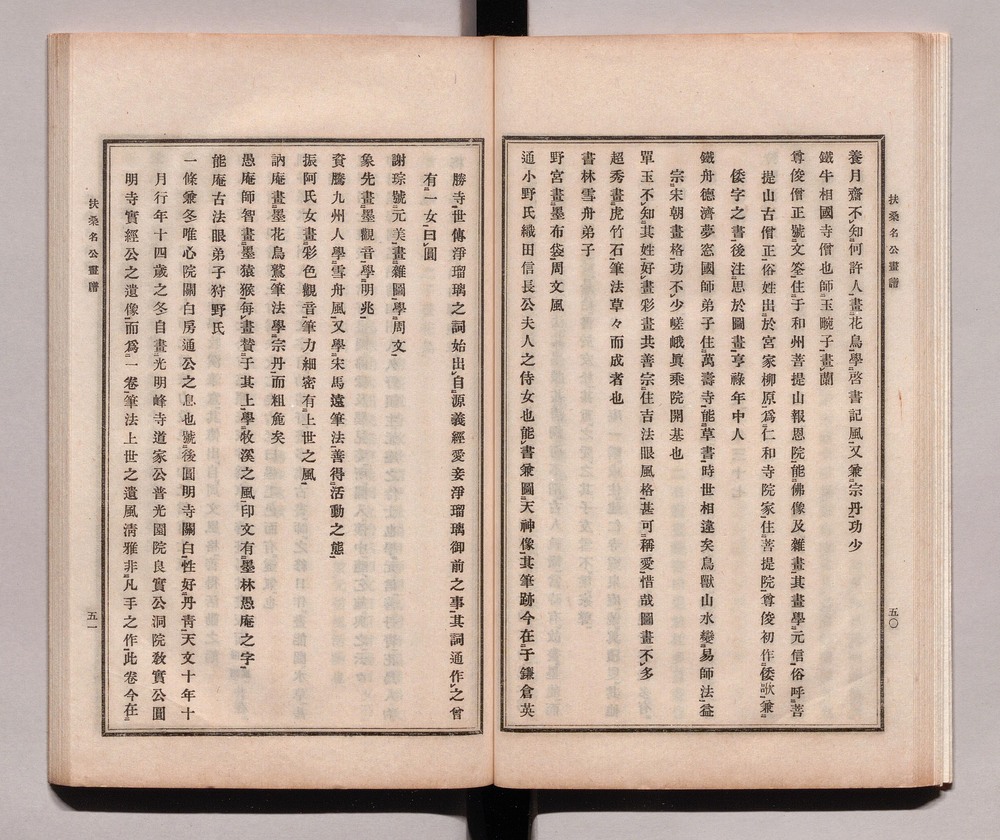 扶桑名公畫譜
五〇
養月齋不知何許人畫花鳥學啓書記風又兼宗丹功少
鐵牛相國寺僧也師玉畹子畫蘭
尊俊僧正號文筌住于和州菩提山報恩院能佛像及雜畫其畫學元信俗呼菩
提山古僧正俗姓出於宮家柳原爲仁和寺院家住菩提院尊俊初作倭歌兼
倭字之書後注思於圖畫享祿年中人
鐵舟德濟夢窓國師弟子住萬壽寺能草書時世相違矣鳥獸山水變易師法益
宗宋朝畫格功不少嵯峨眞乘院開基也
單玉不知其姓好畫彩畫共善宗住吉法眼風格甚可稱愛惜哉圖畫不多
超秀畫虎竹石筆法草々而成者也
書林雪舟弟子
野宮畫墨布袋周文風
通小野氏織田信長公夫人之侍女也能書兼圖天神像其筆跡今在于鎌倉英
勝寺世傳淨瑠璃之詞始出自源義經愛妾淨瑠璃御前之事其詞通作之曾
有一女曰圓
謝琮號元美畫雜圖學周文
象先畫墨觀音學明兆
資騰九州人學雪舟風又學宋馬遠筆法善得活動之態
振阿氏女畫彩色觀音筆力細密有上世之風
訥庵畫墨花鳥鷲筆法學宗丹而粗麁矣
愚庵師智畫墨猿猴每畫贊于其上學牧溪之風印文有墨林愚庵之字
能庵古法眼弟子狩野氏
一條兼冬唯心院關白房通公之息也號後圓明寺關白性好丹靑天文十年十
月行年十四歲之冬自畫光明峰寺道家公普光園院良實公洞院敎實公圓
明寺實經公之遺像而爲一卷筆法上世之遺風淸雅非凡手之作此卷今在
扶桑名公畫譜
五一